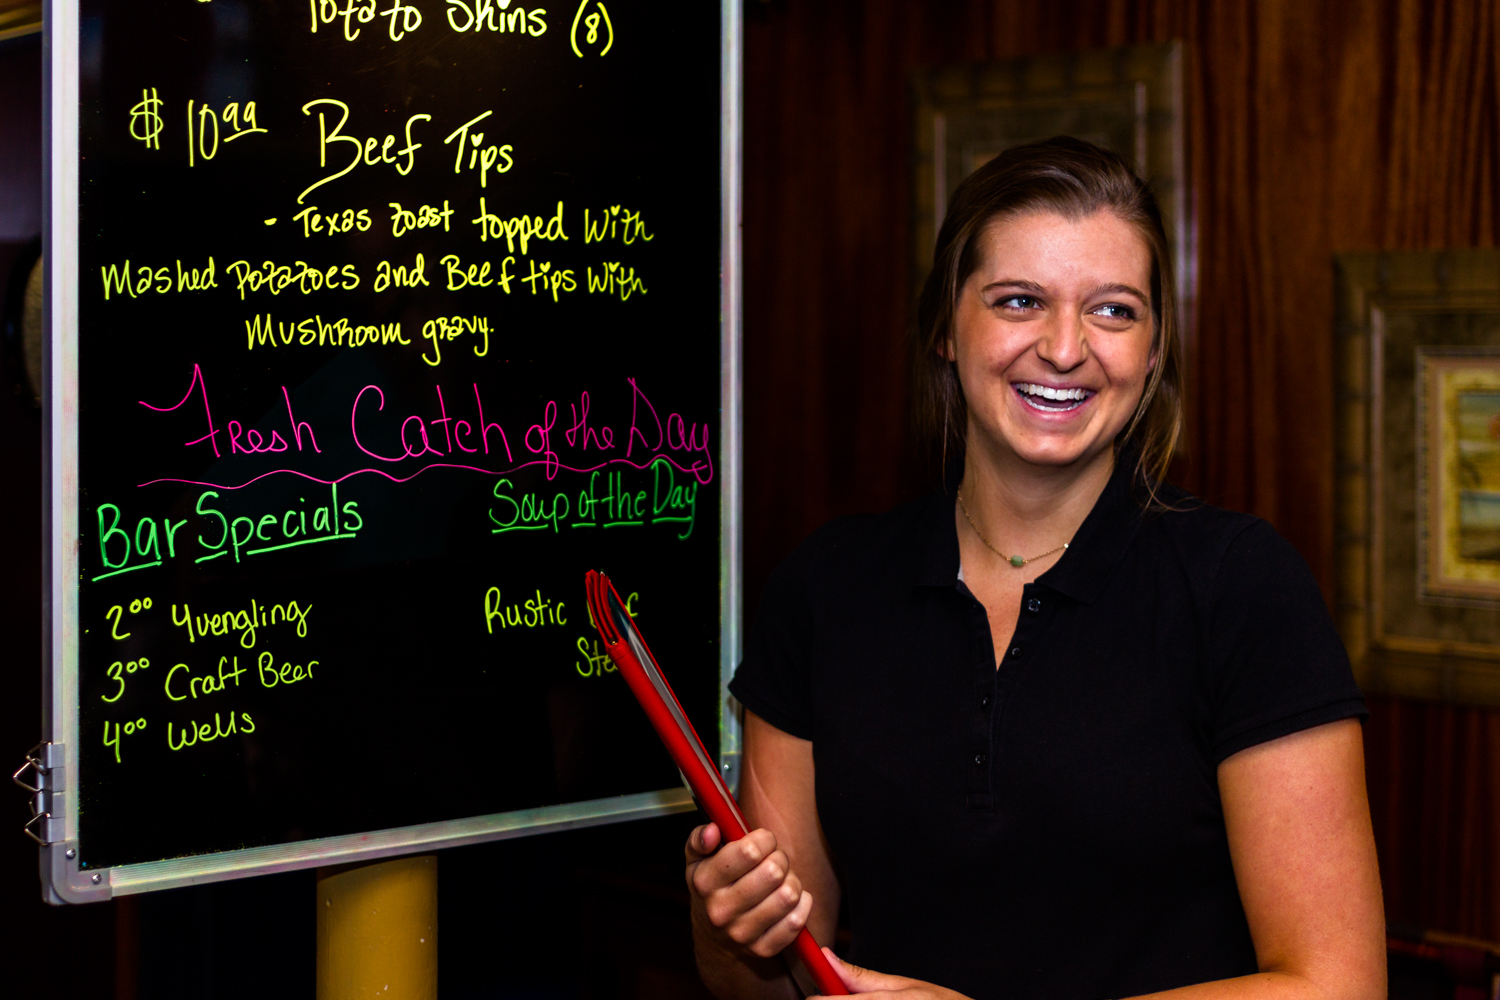 Potato Skins (8)
$ 10.99 Beef Tips
- Texas toast topped with
Mashed Potatoes and Beef tips with
Mushroom gravy.
Fresh Catch of the Day
Bar Specials
Soup of the Day
2.00 Yuengling
3.00 Craft Beer
4.00 Wells
Rustic